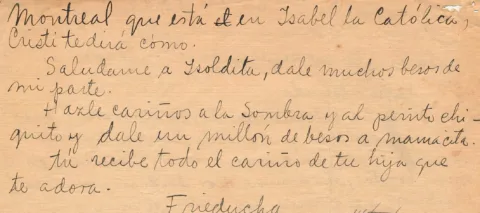 Montreal que está en Isabel la Católica,
Cristi te dirá como.
Saludame a Isoldita, dale muchos besos de
mi parte.
Hazle cariños a la Sombra y al perrito chi-
quito y dale un millón de besos a mamacita.
tu recibe todo el cariño de tu hija que
te adora.
Frieducha